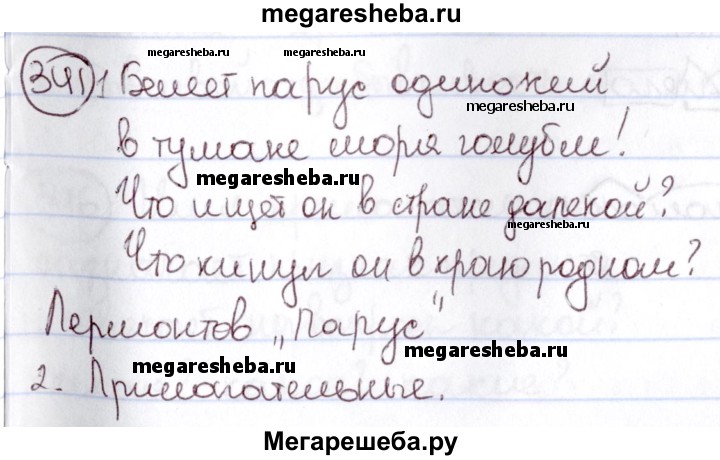 megaresheba.ru
megaresheba.ru megaresheba.ru
341 1 Белеет парус одинокий
megaresheba.ru
в тумане моря голубом!
megaresheba.ru
Что ищет он в стране далекой?
megaresheba.ru
Что кинул он в краю родном?
Лермонтов „Парус"
megaresheba.ru
megaresheba.ru
2. Прилагательные.
Мегарешеба.ру